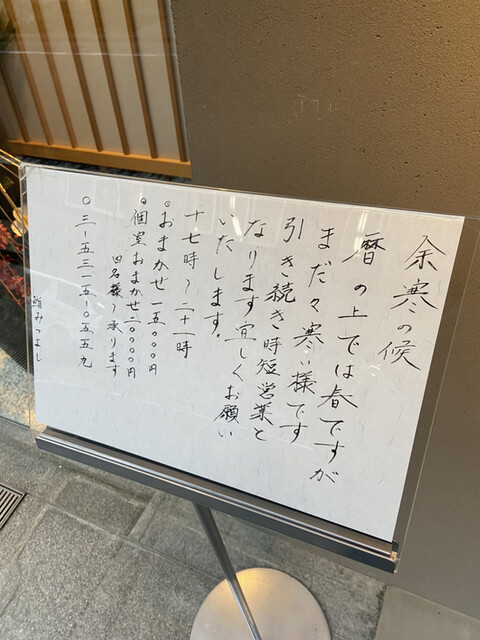 余寒の候
暦の上では春ですが
まだ々寒い様です
引き続き時短営業と
なります宜しくお願い
いたします.
十七時〜二十一時
○おまかせ 一五〇〇〇円
○個室おまかせ二〇〇〇〇円
四名様〜承ります
〇三-五三一五-〇五五九
鮨みつよし